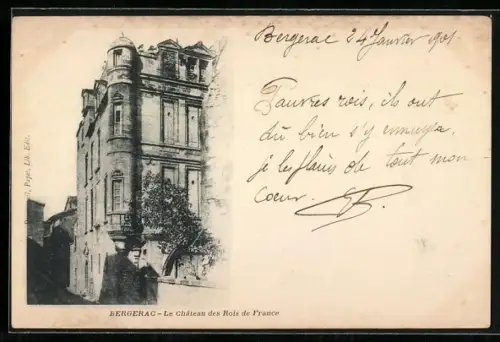 Bergerac 24 Janvier 1901.
Pauvres rois, ils ont
dû bien s'y ennuyer.
je les plains de tout mon
Coeur.
G, Pepe, Lib. Edit.
BERGERAC - Le Château des Rois de France